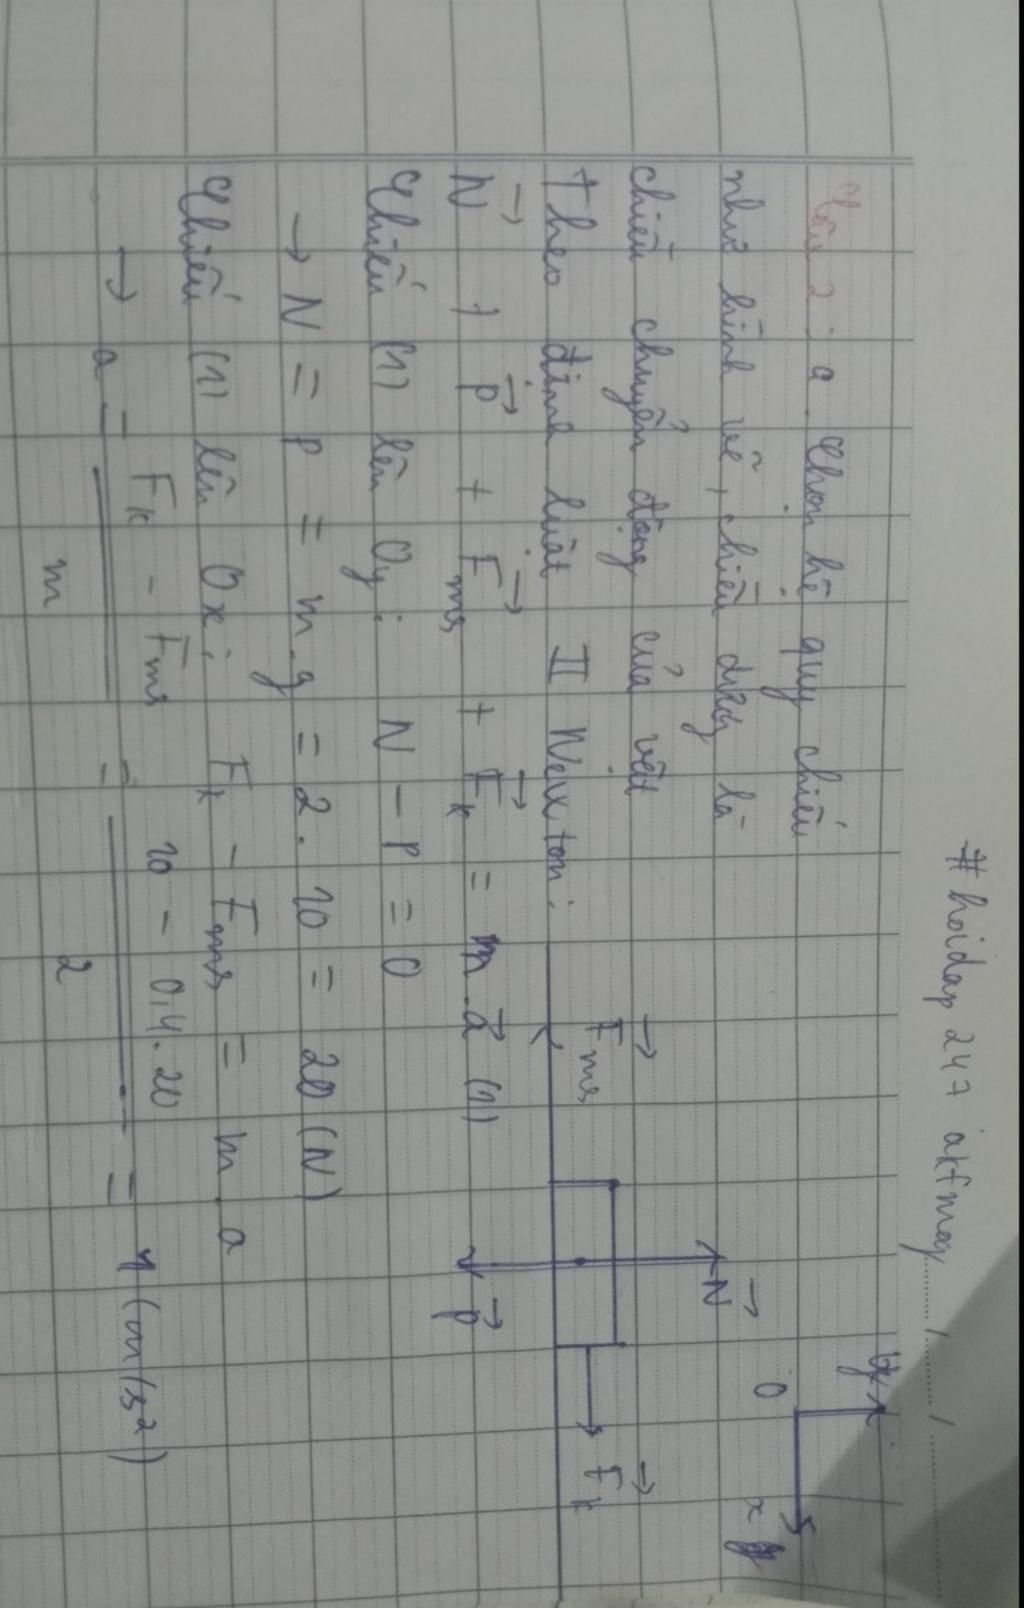 # hoidap 247 arfmay
Câu 2: a. Chọn hệ quy chiếu
như hình vẽ, chiều dương là
chiều chuyển động của vật
Theo định luật II Newxton:
N + P + Fms + Fk = m.a (1)
Chiếu (1) lên Oy: N - P = 0
→ N = P = m.g = 2.10 = 20 (N)
Chiếu (1) lên Ox: Fk - Fms = m.a
→ a = (Fk - Fms)/m = (10 - 0,4.20)/2 = 1 (m/s²)
y
O
x
N
Fms
Fk
P